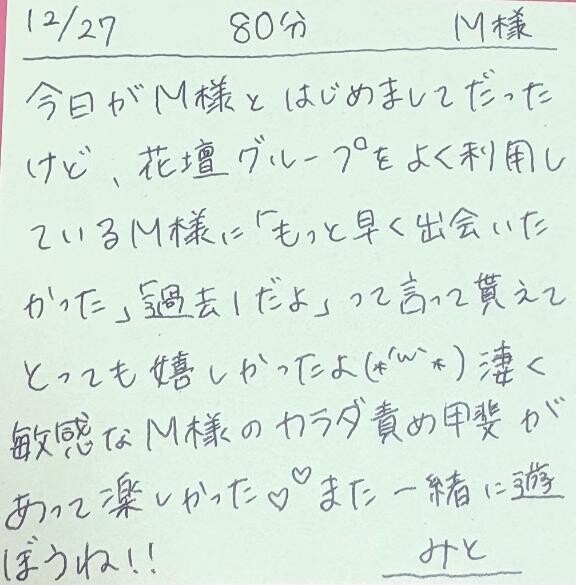 12/27 80分 M様
今日がM様とはじめましてだった
けど、花壇グループをよく利用し
ているM様に「もっと早く出会いた
かった」「過去1だよ」って言って貰えて
とっても嬉しかったよ(*'ω'*)凄く
敏感なM様のカラダ責め甲斐が
あって楽しかった♡♡また一緒に遊
ぼうね!! みと